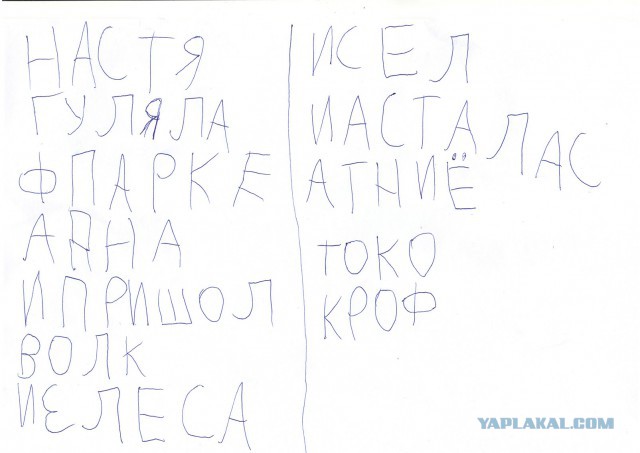 НАСТЯ
ГУЛЯЛА
ФПАРКЕ
АДНА
И ПРИШОЛ
ВОЛК
ИЗЛЕСА
ИСЕЛ
ИАСТАЛАС
АТНИЁ
ТОКО
КРОФ
YAPLAKAL.COM